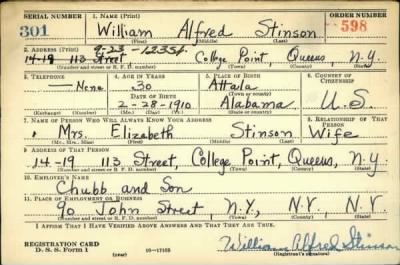 SERIAL NUMBER 1. NAME (Print) ORDER NUMBER
301 William Alfred Stinson 598
(First) (Middle) (Last)
2. ADDRESS (Print)
14-19 113 Street College Point, Queens, N.Y.
(Number and street or R. F. D. number) (Town) (County) (State)
3. TELEPHONE 4. AGE IN YEARS 5. PLACE OF BIRTH 6. COUNTRY OF CITIZENSHIP
— None 30 Attala
DATE OF BIRTH (Town or county)
2-28-1910 Alabama U.S.
(Exchange) (Number) (Mo.) (Day) (Yr.) (State or country)
7. NAME OF PERSON WHO WILL ALWAYS KNOW YOUR ADDRESS 8. RELATIONSHIP OF THAT PERSON
Mrs. Elizabeth Stinson Wife
(Mr., Mrs., Miss) (First) (Middle) (Last)
9. ADDRESS OF THAT PERSON
14-19 113 Street, College Point, Queens, N.Y.
(Number and street or R. F. D. number) (Town) (County) (State)
10. EMPLOYER'S NAME
Chubb and Son
11. PLACE OF EMPLOYMENT OR BUSINESS
90 John Street N.Y. N.Y. N.Y.
(Number and street or R. F. D. number) (Town) (County) (State)
I AFFIRM THAT I HAVE VERIFIED ABOVE ANSWERS AND THAT THEY ARE TRUE.
REGISTRATION CARD
D. S. S. Form 1 William Alfred Stinson
(over) (Registrant's signature)